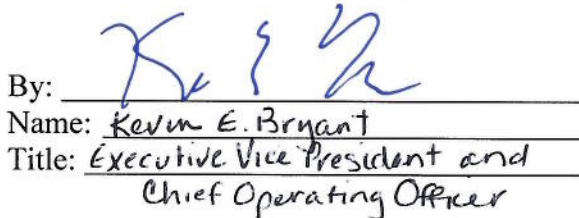 By:
Name: Kevin E. Bryant
Title: Executive Vice President and
Chief Operating Officer